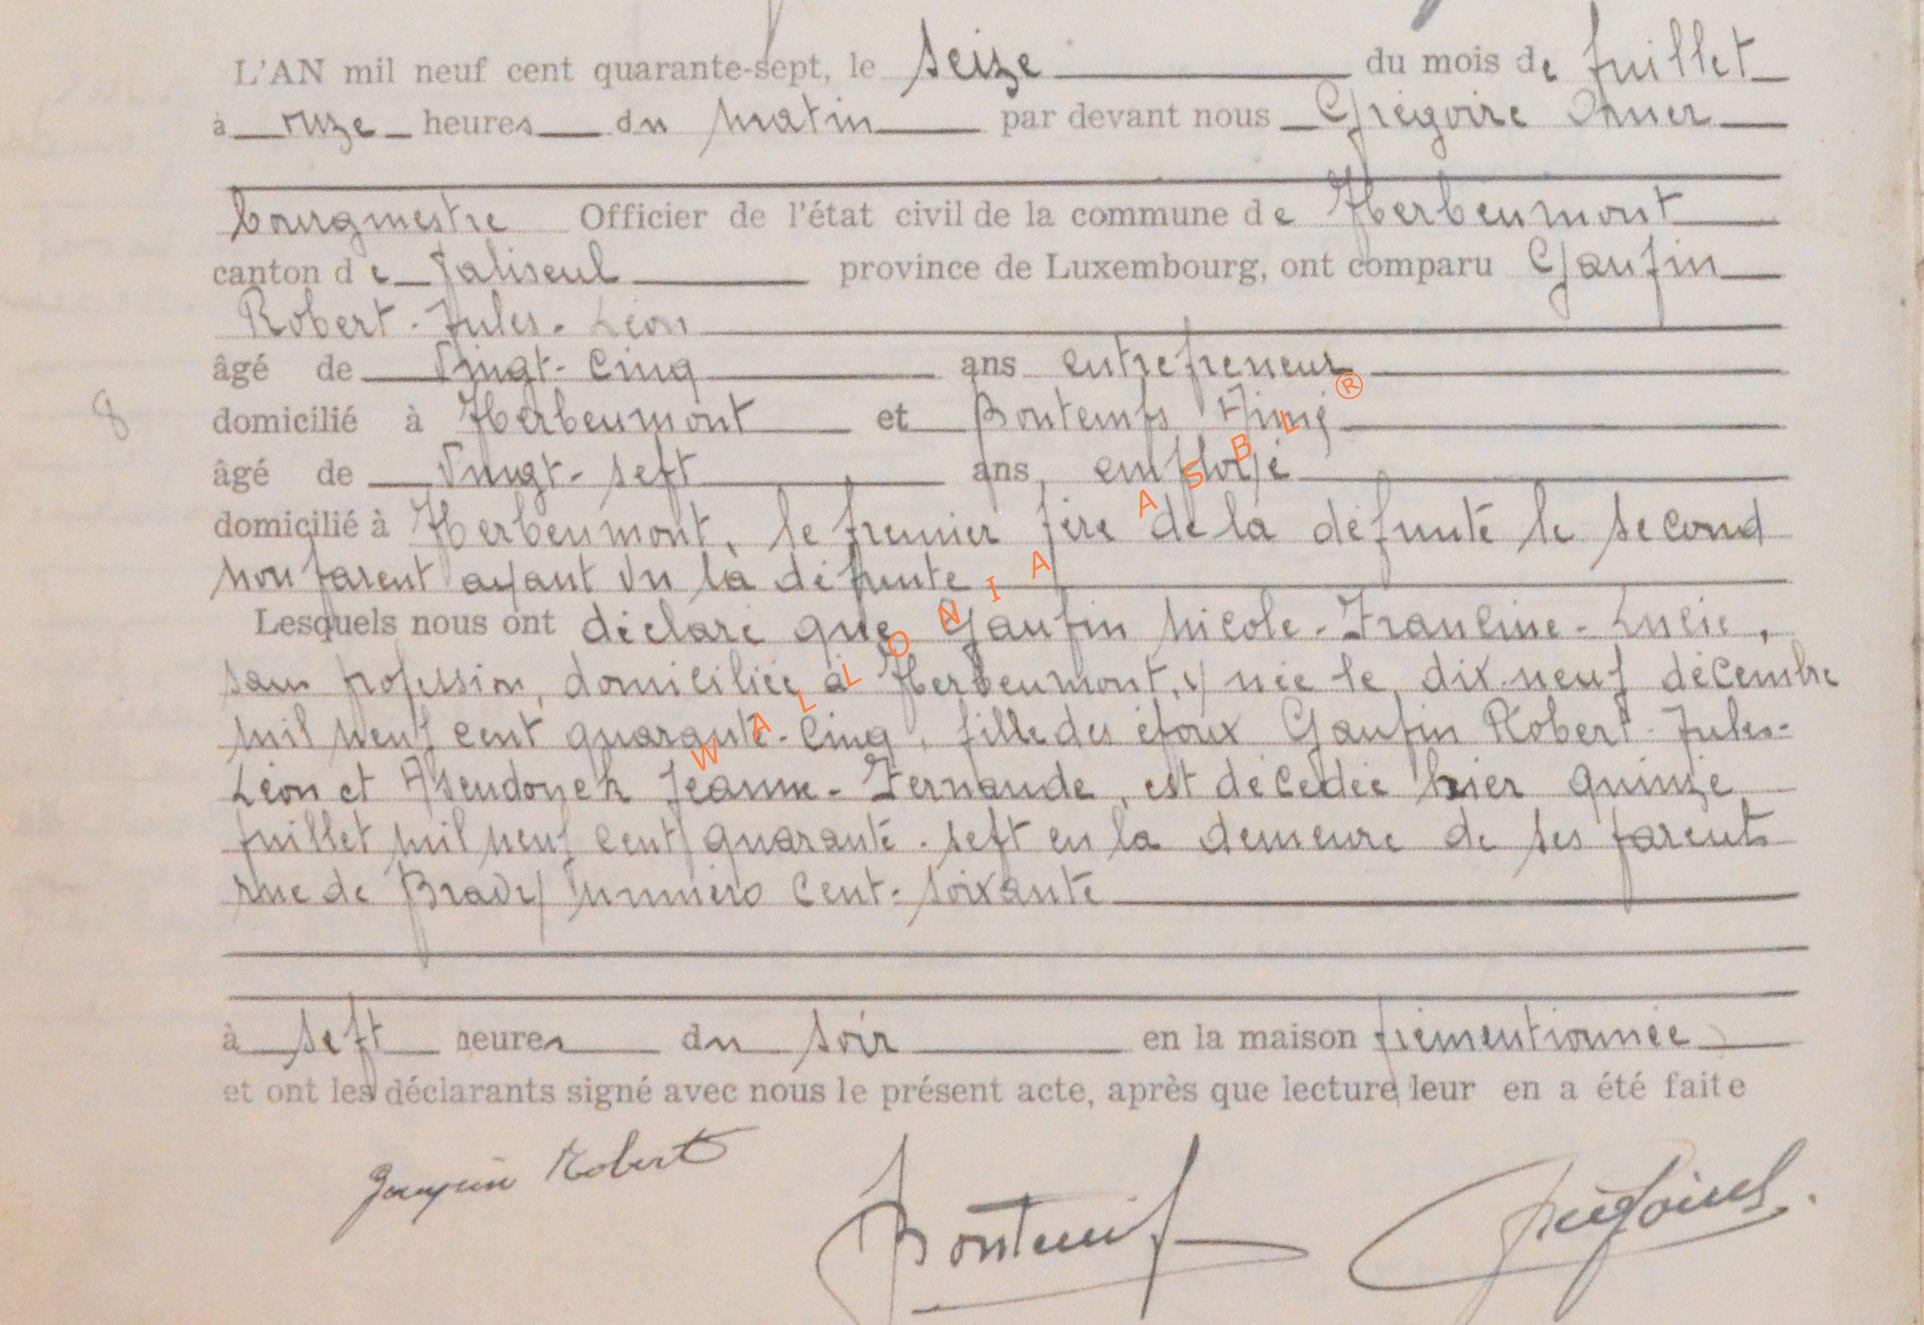 L'AN mil neuf cent quarante-sept, le seize du mois de juillet
à onze heures du matin par devant nous Grégoire Omer
bourgmestre Officier de l'état civil de la commune de Herbeumont
canton de Paliseul province de Luxembourg, ont comparu Gaupin
Robert-Jules-Léon
âgé de vingt-cinq ans entrepreneur
8
domicilié à Herbeumont et Bontemps Aimé
âgé de vingt-sept ans, employé
domicilié à Herbeumont, le premier père de la défunte le second
non parent ayant vu la défunte
Lesquels nous ont déclaré que Gaupin Nicole-Francine-Lucie,
sans profession, domiciliée à Herbeumont, y née le dix-neuf décembre
mil neuf cent quarante-cinq, fille des époux Gaupin Robert-Jules-
Léon et Jeanne-Fernande, est décédée hier quinze
juillet mil neuf cent quarante-sept en la demeure de ses parents
rue de Bravy numéro cent-soixante
à sept heures du soir en la maison prémentionnée
et ont les déclarants signé avec nous le présent acte, après que lecture leur en a été faite
Gaupin Robert
Bontemps Grégoire
WALLONIA ASBL ®